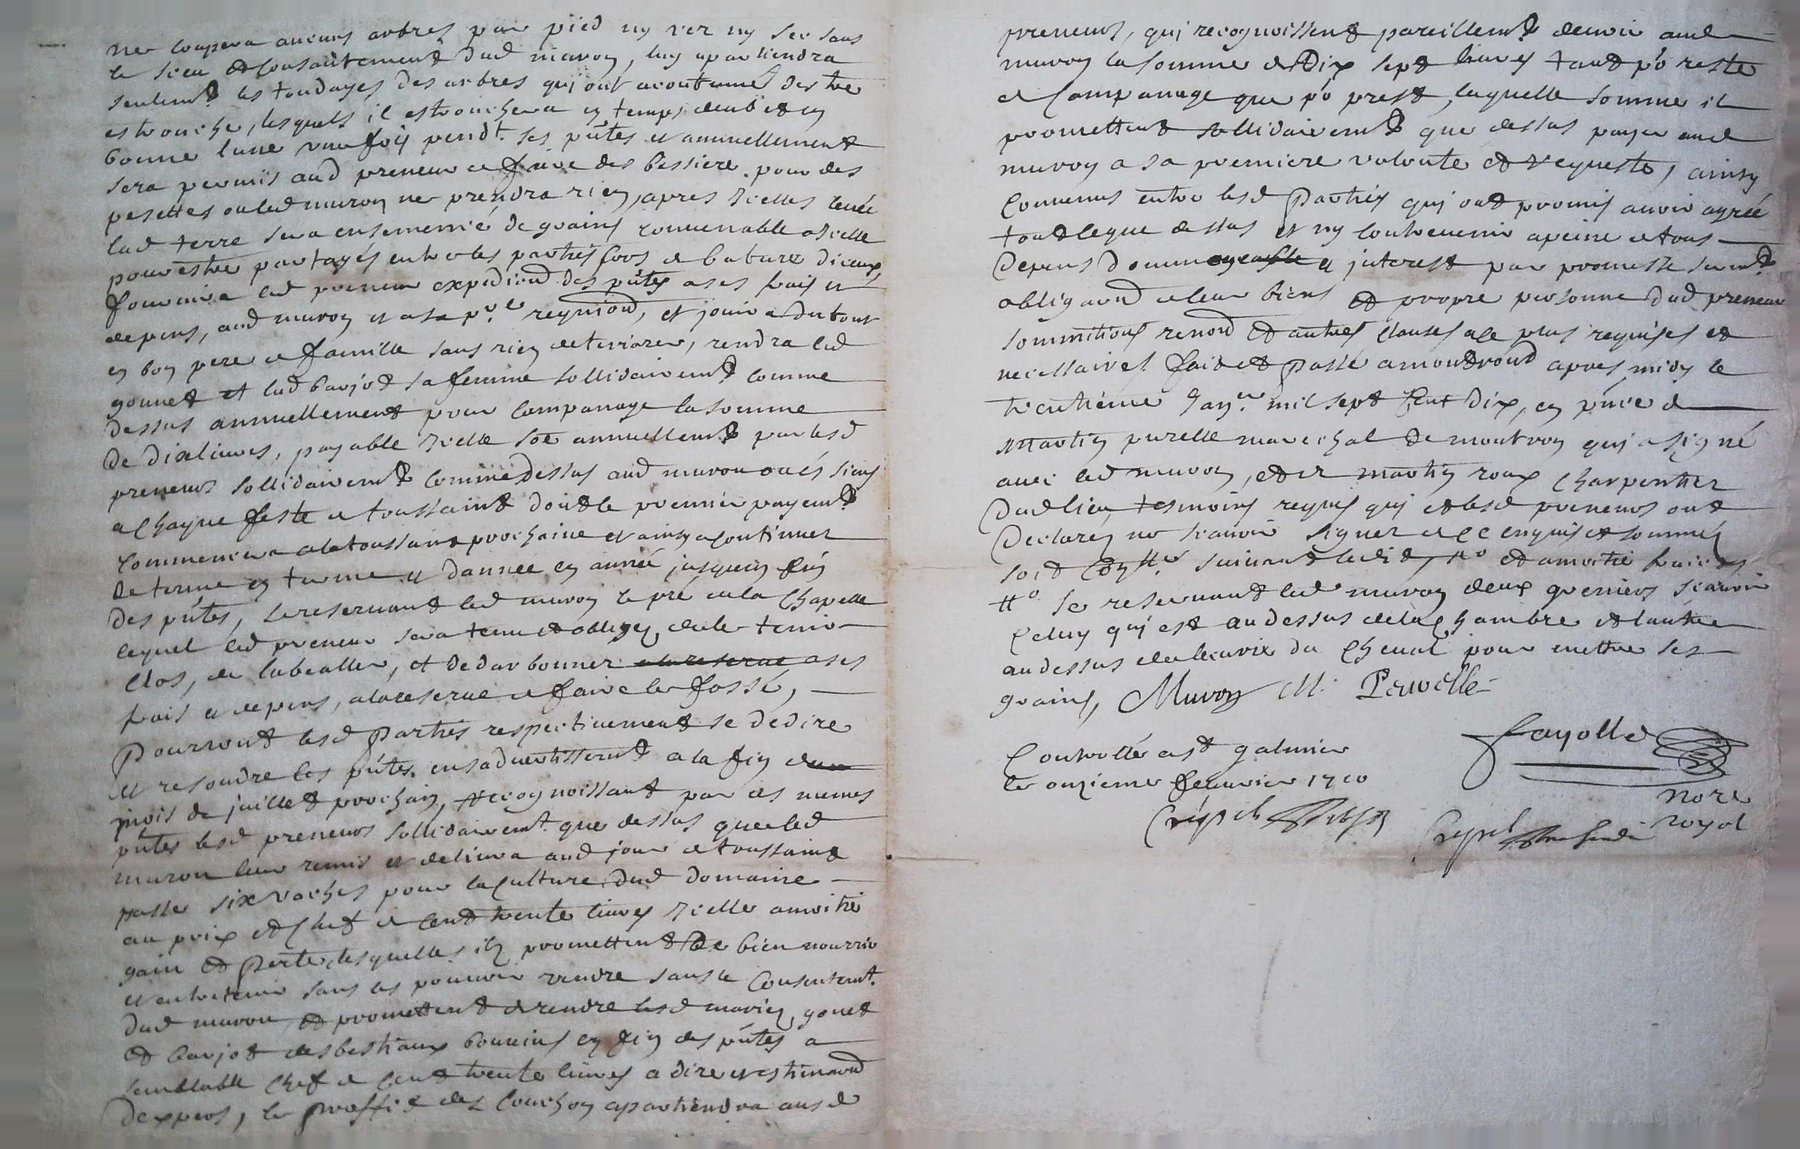 ne coupera aucuns arbres par pied ny ver ny sec sans
le sceu et consantement dud muron, luy apartiendra
seulemt les tondages des arbres qui ont acoutumé destre
estronché, lesquels il estronchera en temps deub et en
bonne lune une fois pendt ses pntes et annuellement
sera permis aud preneur de faire des bessiere pour des
pesettes ou led muron ne prendra rien, apres icelles levée
lad terre sera ensemencé de grains convenable a icelle
pour estre partagés entre les parties fors de bature diceux,
fournira led preneur expediond des pntes a ses frais et
depens, aud muron et a sa pre requisiond, et jouira du tout
en bon pere de famille sans rien deteriorer, rendra led
gonnet et lad barjot sa femme sollidairemt comme
dessus annuellement pour companage la somme
de dix livres, payable icelle soe annuellemt par lesd
preneurs sollidairemt comme dessus aud muron ou es siens
a chaque feste de toussaint dont le premier payemt
commencera a la toussant prochaine et ainsy a continuer
de terme en terme et dannée en année jusquen fin
des pntes, se reservant led muron le pré de la chapelle
lequel led preneur sera tenu et obligé de le tenir
clos, de labealler, et dedarbonner a la reserve a ses
frais et depens, a la reserve de faire le fossé,
pourront lesd parties respectivement se dedire
et resoudre les pntes en sadvertissemt a la fin du
mois de juillet prochain, recognoissant par ces memes
pntes lesd preneurs sollidairemt que dessus que led
muron leur remis et delivra aud jour de toussaint
passé six vaches pour la culture dud domaine
au prix et chef de cent trente livres icelle a moitié
gain et perte, lesquelles ils promettent de bien nourrir
et entretenir sans les pouvoir vendre sans le consentemt
dud muron et promettent de rendre lesd mariés gonet
et barjot des bestiaux bouvins en fin des pntes a
semblable chef de cent trente livres a dire et estimaond
dexpers, le proffit des couchon apartiendra ausd
preneurs, qui recognoissent pareillemt devoir aud
muron la somme de dix sept livres tant po reste
de companage que po prest, laquelle somme il
promettent sollidairemt que dessus payer aud
muron a sa premiere volonté et requeste, ainsy
convenus entre lesd parties qui ont promis avoir agréé
tout ce que dessus et ny contrevenir a peine de tous
depens dommages et interest par promesse sermt
obligaond de leur biens et propre personne dud preneur
sommitions renond et autres clauses a ce plus requises et
necessaires fait et passé a montrond apres midy le
trentieme janer mil sept cent dix, en pnce de
martin purelle marechal de montron qui a signé
avec led muron, et de martin roux charpentier
dud lieu tesmoins requis qui et lesd preneurs ont
declarez ne scavoir signer de ce enquis et sommés
soit suivant ledit et a moitié fraicts
se reservant led muron deux greniers scavoir
celuy qui est au dessus de la chambre et lautre
au dessus de lecurie du cheval pour mettre ses
grains, Muron M. Perrelle
Fayolle
Controllé a st galmier
le onzieme febvrier 1710
nore
royal